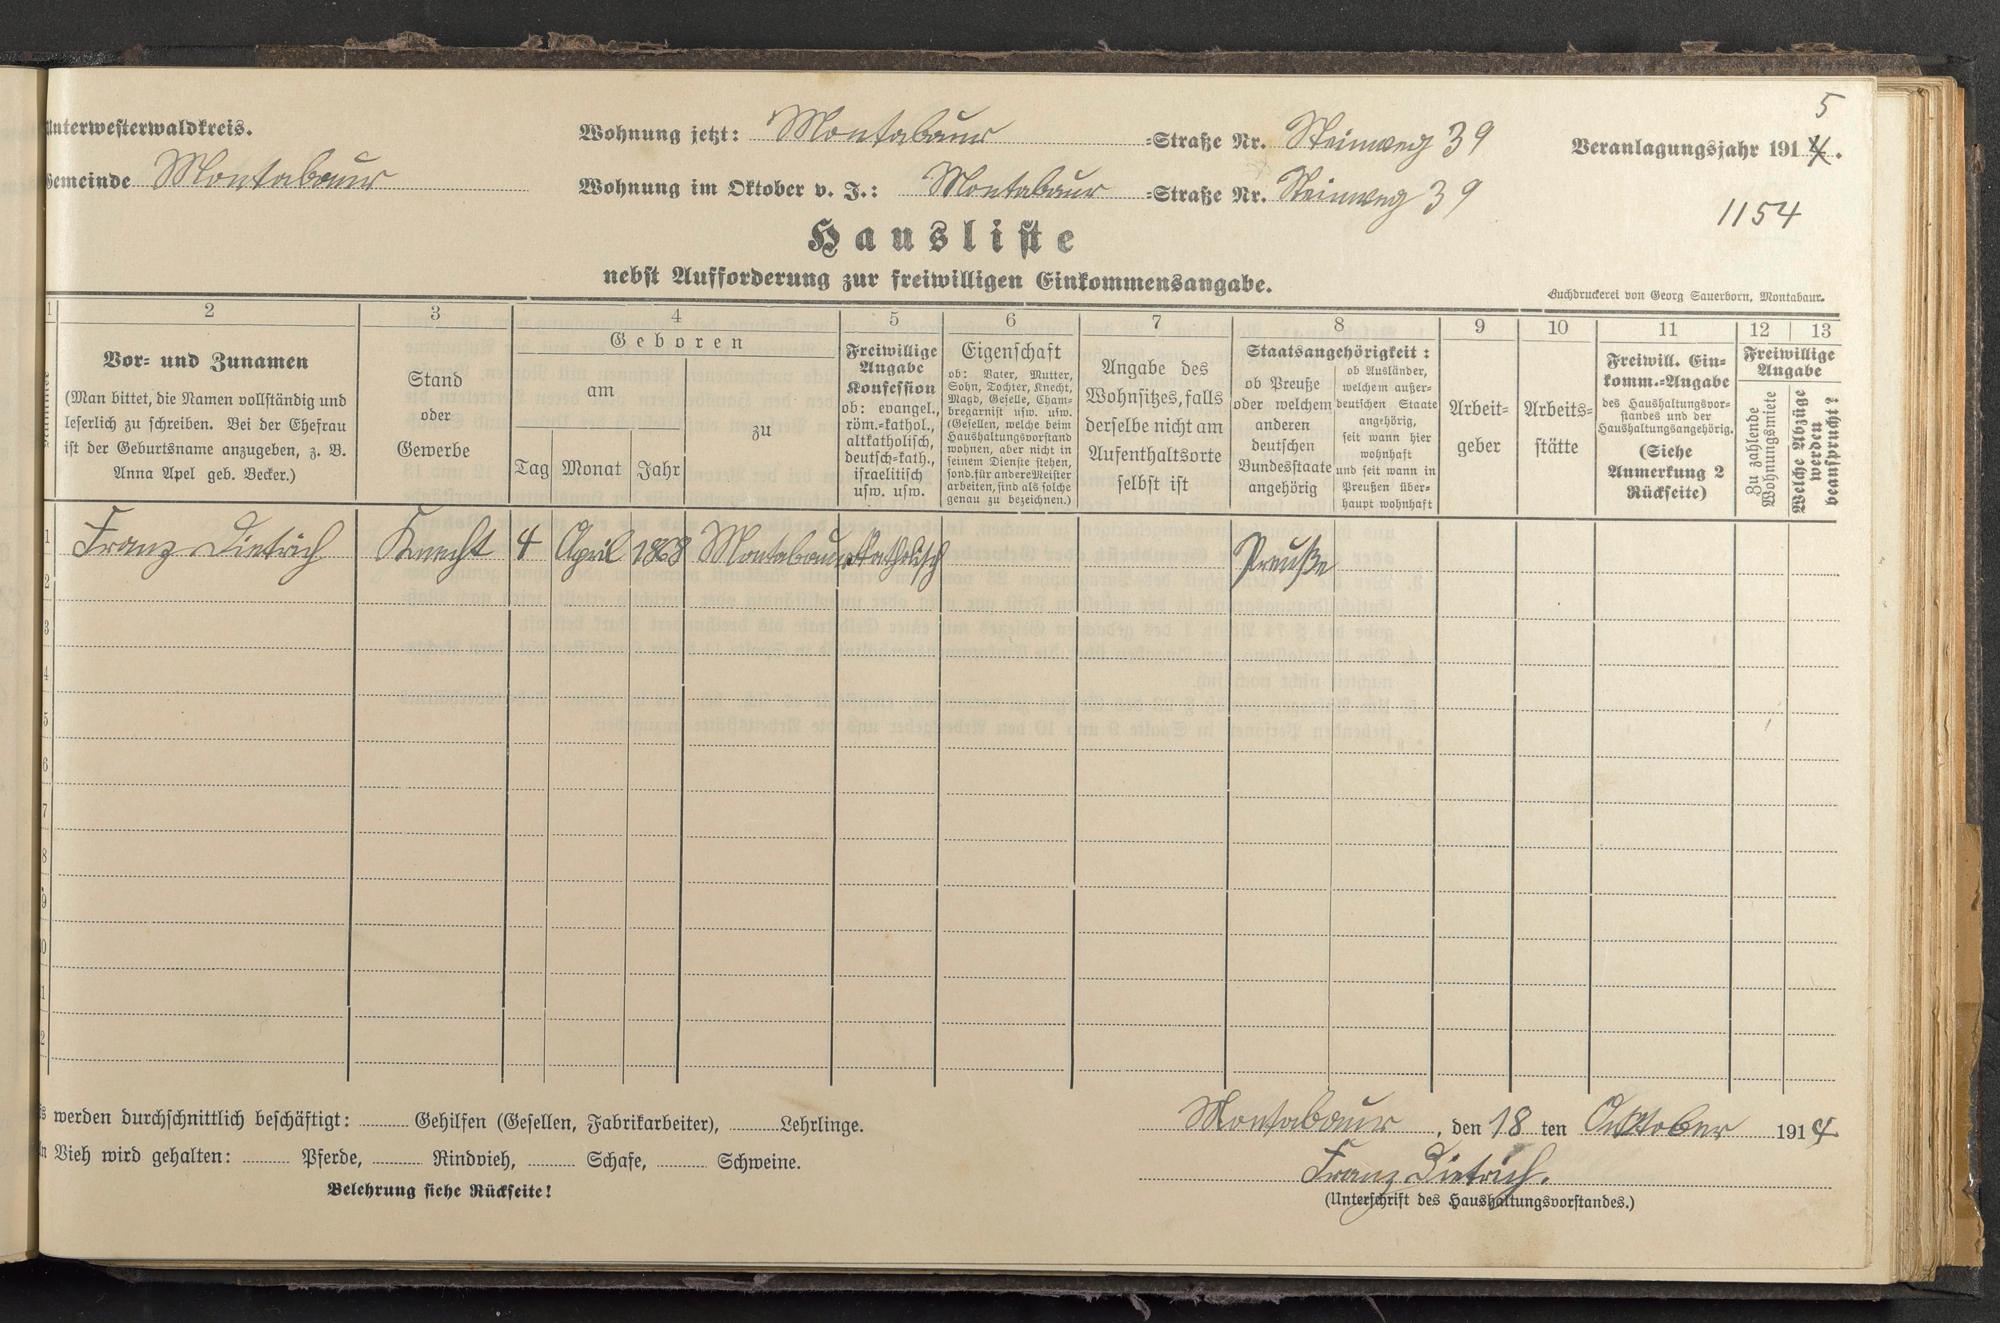 Unterwesterwaldkreis.
Gemeinde Montabaur
Wohnung jetzt: Montabaur -Straße Nr. Steinweg 39
Wohnung im Oktober v. J.: Montabaur -Straße Nr. Steinweg 39
Veranlagungsjahr 191 4.
5
1154
Hausliste
nebst Aufforderung zur freiwilligen Einkommensangabe.
Buchdruckerei von Georg Sauerborn, Montabaur.
1
2
Vor- und Zunamen
(Man bittet, die Namen vollständig und
leserlich zu schreiben. Bei der Ehefrau
ist der Geburtsname anzugeben, z. B.
Anna Apel geb. Becker.)
3
Stand
oder
Gewerbe
4
Geboren
am
Tag Monat Jahr
zu
5
Freiwillige
Angabe
Konfession
ob: evangel.,
röm.-kathol.,
altkatholisch,
deutsch-kath.,
israelitisch
usw. usw.
6
Eigenschaft
ob: Vater, Mutter,
Sohn, Tochter, Knecht,
Magd, Geselle, Cham-
bregarnist usw. usw.
(Gesellen, welche beim
Haushaltungsvorstand
wohnen, aber nicht in
seinem Dienste stehen,
sond. für andere Meister
arbeiten, sind als solche
genau zu bezeichnen.)
7
Angabe des
Wohnsitzes, falls
derselbe nicht am
Aufenthaltsorte
selbst ist
8
Staatsangehörigkeit:
ob Preuße
oder welchem
anderen
deutschen
Bundesstaate
angehörig
ob Ausländer,
welchem außer-
deutschen Staate
angehörig,
seit wann hier
wohnhaft
und seit wann in
Preußen über-
haupt wohnhaft
9
Arbeit-
geber
10
Arbeits-
stätte
11
Freiwill. Ein-
komm.-Angabe
des Haushaltungsvor-
standes und der
Haushaltungsangehörig.
(Siehe
Anmerkung 2
Rückseite)
12 13
Freiwillige
Angabe
Zu zahlende
Wohnungsmiete
Welche Abzüge
werden
beansprucht?
1 Franz Dietrich Knecht 4 April 1868 Montabaur katholisch Preuße
2
3
4
5
6
7
8
9
0
1
2
werden durchschnittlich beschäftigt: Gehilfen (Gesellen, Fabrikarbeiter), Lehrlinge.
Vieh wird gehalten: Pferde, Rindvieh, Schafe, Schweine.
Belehrung siehe Rückseite!
Montabaur, den 18 ten Oktober 1914
Franz Dietrich.
(Unterschrift des Haushaltungsvorstandes.)